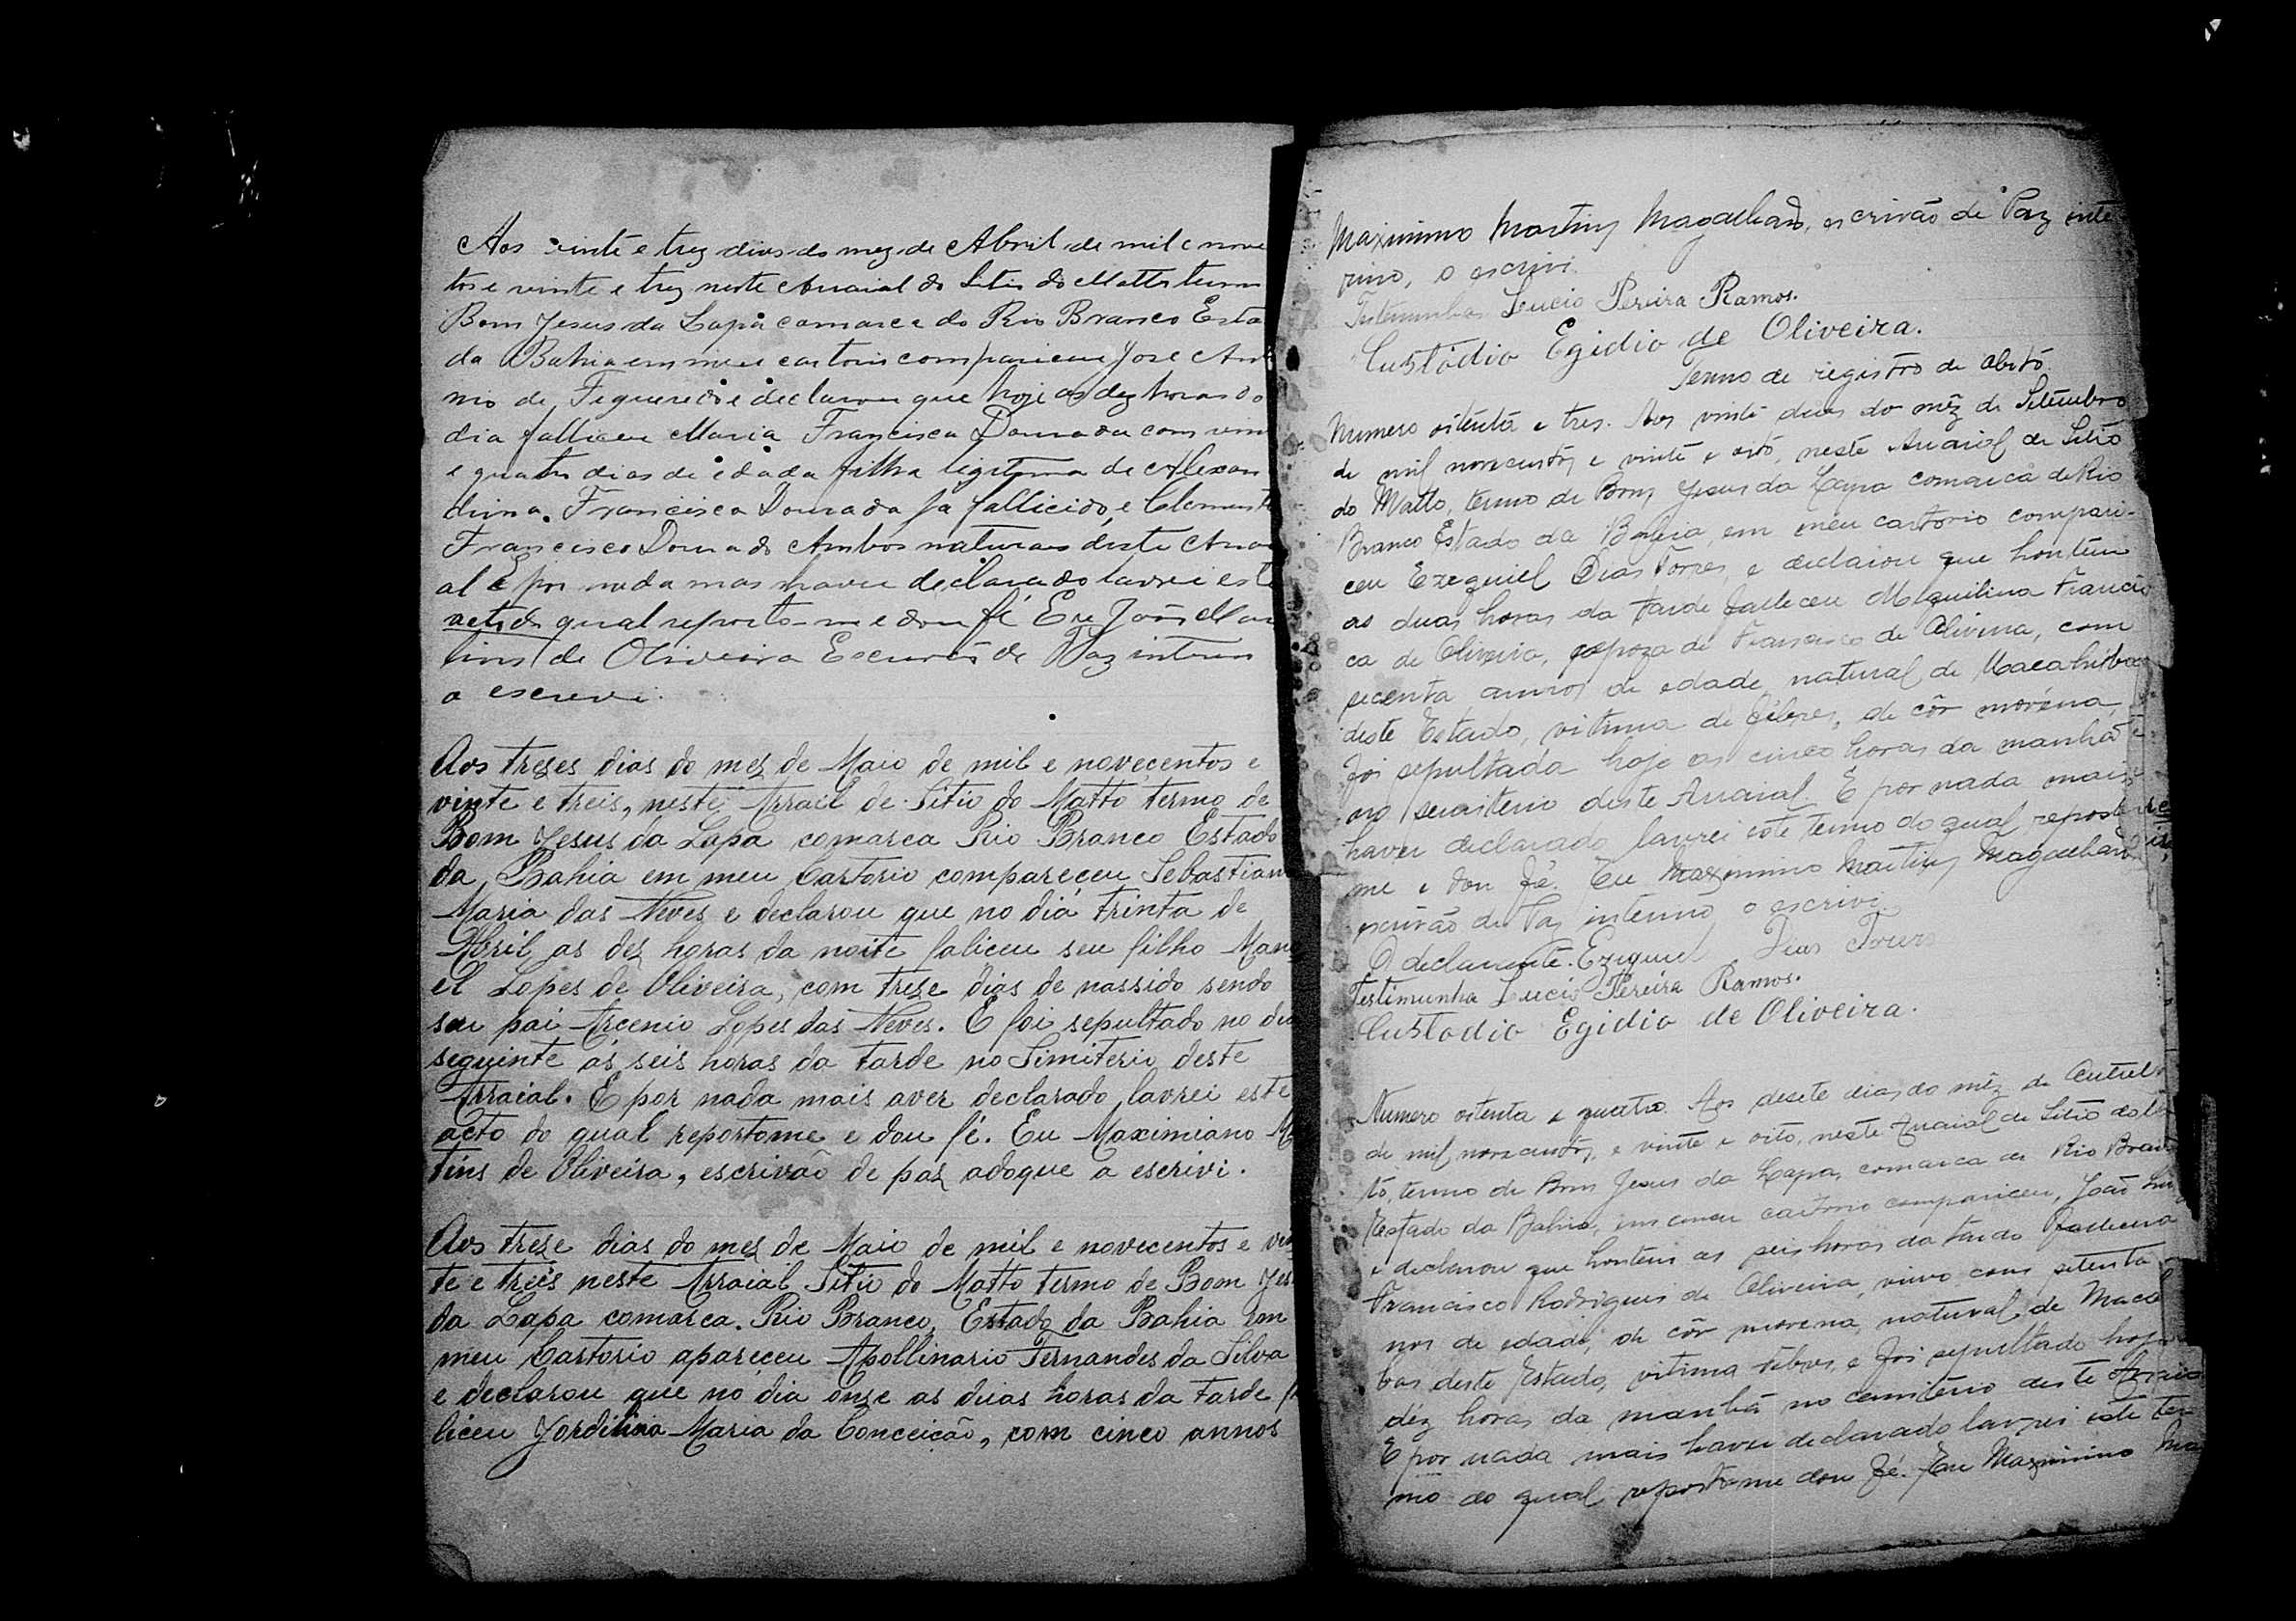 Aos vinte e trez dias do mez de Abril de mil e nove
tos e vinte e trez neste Arraial do Sitio do Matto termo
Bom Jesus da Lapa comarca do Rio Branco Esta
da Bahia em meu cartorio compariceu Jose Anto
nio de Figueredo e declarou que hoje as dez horas do
dia falliceu Maria Francisca Dourada com vin
e quatro dias de idada filha legitima de Alexan
drina Francisca Dourada ja fallicido, e Clemente
Francisco Dourado Ambos naturaes deste Arra
al E por nada mas haver declarado lavrei este
acto do qual reporto-me e dou fé Eu João Mar
tins de Oliveira Escrivão de Paz interino
o escrevi.
Aos trezes dias do mez de Maio de mil e novecentos e
vinte e treis, neste Arrail de Sitio do Matto termo de
Bom Jesus da Lapa comarca Rio Branco Estado
da Bahia em meu Cartorio compareceu Sebastiana
Maria das Neves e declarou que no dia trinta de
Abril as dez horas da noite faliceu seu filho Mano
el Lopes de Oliveira, com treze dias de nassido sendo
seu pai Arcenio Lopes das Neves. E foi sepultado no dia
seguinte ás seis horas da tarde no Simiterio deste
Arraial. E por nada mais aver declarado lavrei este
acto do qual reportome e dou fé. Eu Maximiano Mar
tins de Oliveira, escrivão de paz adoque a escrivi.
Aos treze dias do mez de Maio de mil e novecentos e vin
te e treis neste Arraial Sitio do Matto termo de Bom Jes
da Lapa comarca. Rio Branco, Estado da Bahia em
meu Cartorio apareceu Apollinario Fernandes da Silva
e declarou que no dia onze as duas horas da tarde fa
liceu Maria da Conceicão, com cinco annos
Maximino Martins Magalhães, escrivão de Paz inte
rino, o escrivi.
Testemunhas Lucio Pereira Ramos.
Custódio Egidio de Oliveira.
Termo de registro de obito.
Numero oitenta e tres. Aos vinte dias do mêz de Setembro
de mil novecentos e vinte e oito, neste Arraial de Sitio
do Matto, termo de Bom Jesus da Lapa comarca de Rio
Branco Estado da Bahia, em meu cartorio compari-
ceu Ezequiel Dias Torres, e declarou que hontem
as duas horas da tarde falleceu Miquilina Francis
ca de Oliveira, espoza de Francisco de Oliveira, com
secenta annos de edade, natural de Macahubas
deste Estado, vitima de febres, de côr moréna,
foi sepultada hoje as cinco horas da manhã
no semiterio deste Arraial. E por nada mais
haver declarado lavrei este termo do qual reporto
me e dou fé. Eu Maximino Martins Magalhães,
escrivão de Paz interino, o escrivi.
O declarante. Ezequiel Dias Torres
Testimunha Lucio Pereira Ramos.
Custodio Egidio de Oliveira.
Numero oitenta e quatro. Aos desete dias do mêz de Outub
de mil novecentos, e vinte e oito, neste Arraial de Sitio do Mat
to, termo de Bom Jesus da Lapa, comarca de Rio Bran
Estado da Bahia, em meu cartorio compariceu, João
e declarou que hontem as seis horas da tarde falleceu
Francisco Rodrigues de Oliveira, viuvo com setenta
nos de edade, de côr morena, natural de Maca
bas deste Estado, vitima febres, e foi sepultado hoje
déz horas da manhã no cemitério deste Arraia
E por nada mais haver declarado lavrei este ter
mo do qual reporto-me dou fé. Eu Maximino Ma